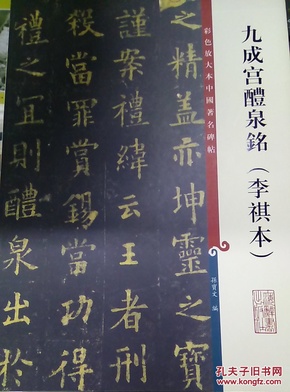 九成宫醴泉銘（李祺本）
彩色放大本中國著名碑帖
孫寶文 編
之精蓋亦坤靈之寶
謹案禮緯云王者刑
殺當罪賞錫當功得
禮之宜則醴泉出於